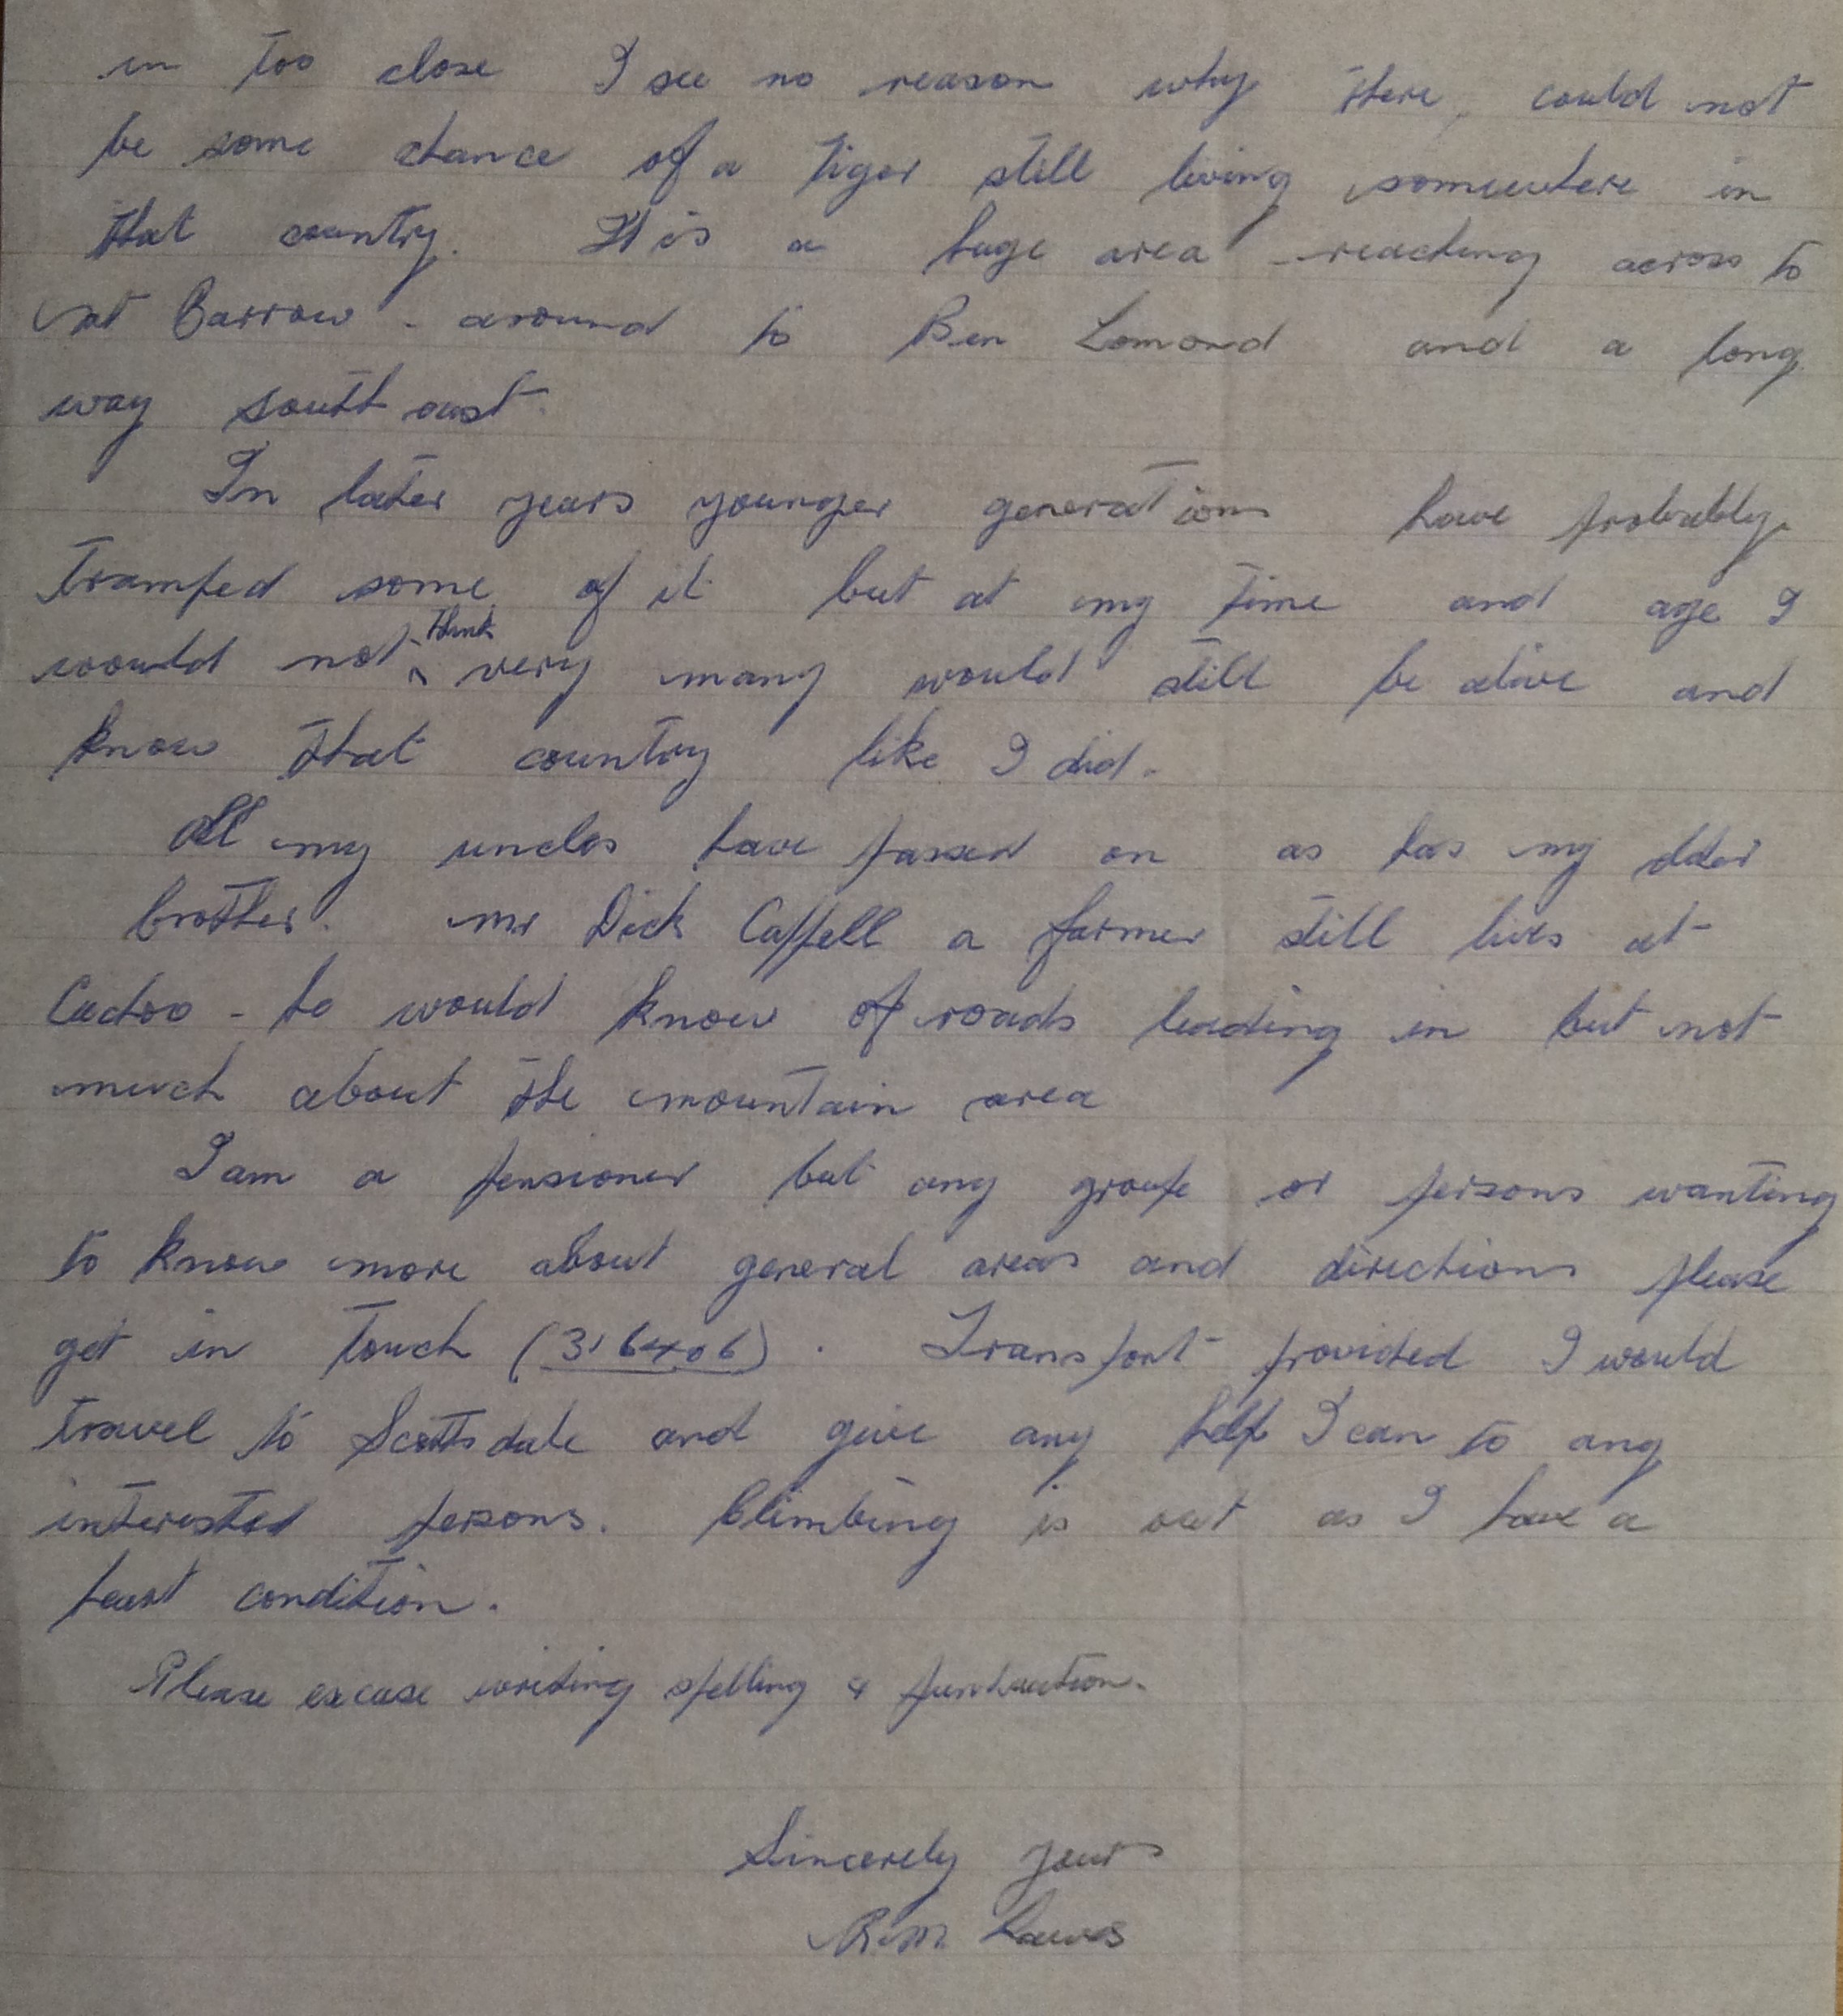 in too close I see no reason why there, could not
be some chance of a tiger still living somewhere in
that country. It is a huge area - reaching across to
mt Barrow - around to Ben Lomond and a long
way south east.
In later years younger generations have probably
tramped some of it but at my time and age I
would not think very many would still be alive and
know that country like I did.
All my uncles have passed on as has my older
brother. Mr Dick Cappell a farmer still lives at
Cuckoo - he would know of roads leading in but not
much about the mountain area
I am a pensioner but any groupe or persons wanting
to know more about general areas and directions please
get in touch (316406). Transport provided I would
travel to Scottsdale and give any help I can to any
interested persons. Climbing is out as I have a
heart condition.
Please excuse writing spelling & puntuation.
Sincerely yours
R.M.